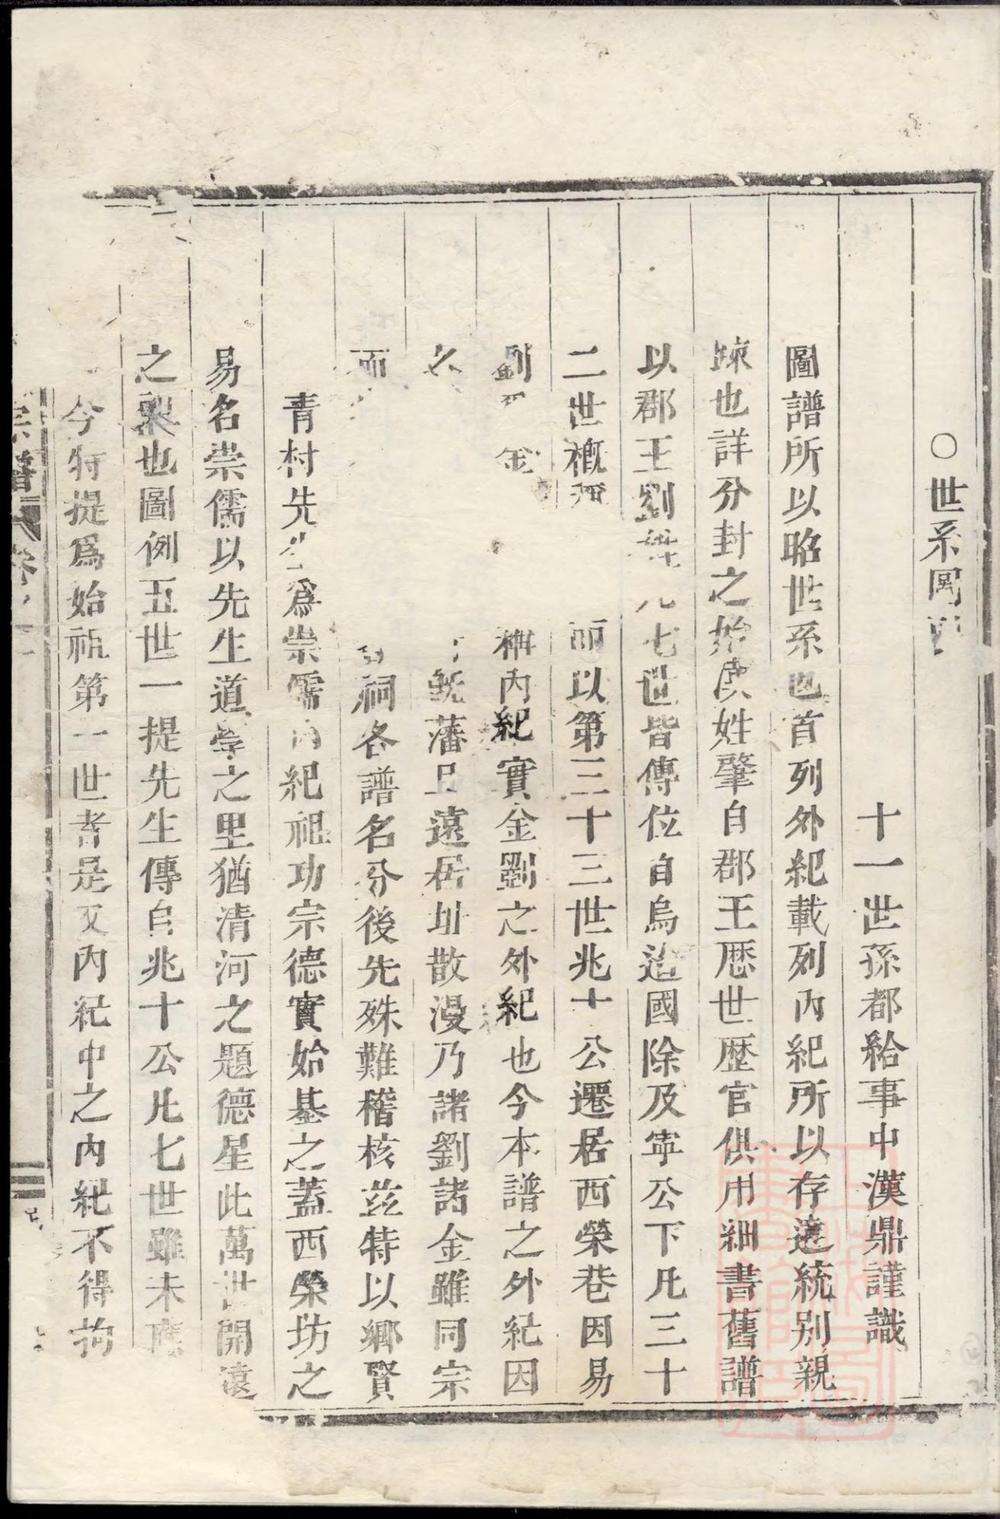 ○世系圖
十一世孫都給事中漢鼎謹識
圖譜所以昭世系也首列外紀載列內紀所以存遠統別親
疎也詳分封之始庋姓肇自郡王歷世歷官俱用細書舊譜
以郡王劉 九七世皆傳位自烏造國除及寜公下凡三十
二世槪 而以第三十三世兆十公遷居西榮巷因易
劉 金 稱內紀實金劉之外紀也今本譜之外紀因
名 旣藩且遠居址散漫乃諸劉諸金雖同宗
而 祠各譜名分後先殊難稽核茲特以鄉賢
青村先生爲崇儒內紀祖功宗德實始基之蓋西榮坊之
易名崇儒以先生道學之里猶清河之題德星此萬世開遠
之 也圖例五世一提先生傳自兆十公凡七世雖未應
今特提爲始祖第一世者是又內紀中之內紀不得拘
宗譜 卷